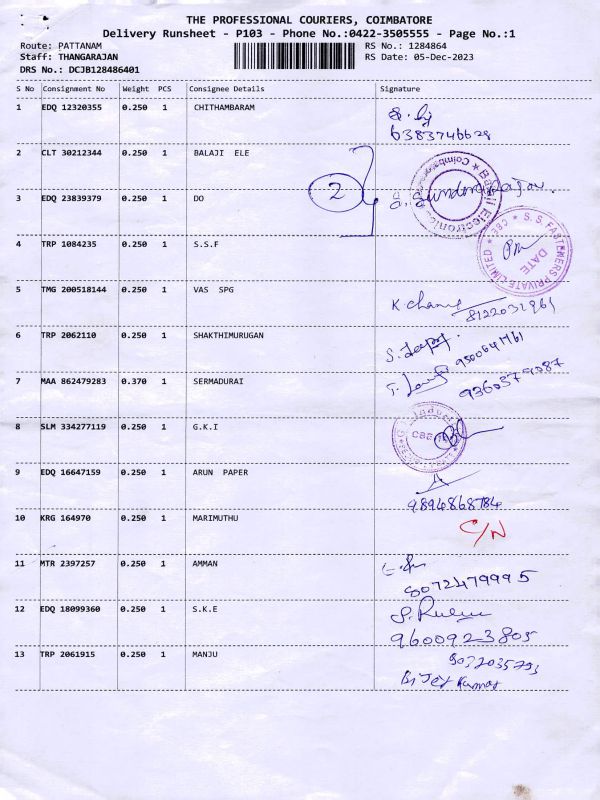 THE PROFESSIONAL COURIERS, COIMBATORE
Delivery Runsheet - P103 - Phone No.:0422-3505555 - Page No.:1
Route: PATTANAM RS No.: 1284864
Staff: THANGARAJAN RS Date: 05-Dec-2023
DRS No.: DCJB128486401
S No Consignment No Weight PCS Consignee Details Signature
1 EDQ 12320355 0.250 1 CHITHAMBARAM
6383746628
2 CLT 30212344 0.250 1 BALAJI ELE
2
Balaji Electronics * Coimbatore *
3 EDQ 23839379 0.250 1 DO
4 TRP 1084235 0.250 1 S.S.F
S.S. FASTENERS PRIVATE LIMITED * CBE *
DATE
5 TMG 200518144 0.250 1 VAS SPG
8122032961
6 TRP 2062110 0.250 1 SHAKTHIMURUGAN
7 MAA 862479283 0.370 1 SERMADURAI
9360579087
8 SLM 334277119 0.250 1 G.K.I
9 EDQ 16647159 0.250 1 ARUN PAPER
9894868784
10 KRG 164970 0.250 1 MARIMUTHU
C/N
11 MTR 2397257 0.250 1 AMMAN
8072479995
12 EDQ 18099360 0.250 1 S.K.E
9600923805
13 TRP 2061915 0.250 1 MANJU
Kumar